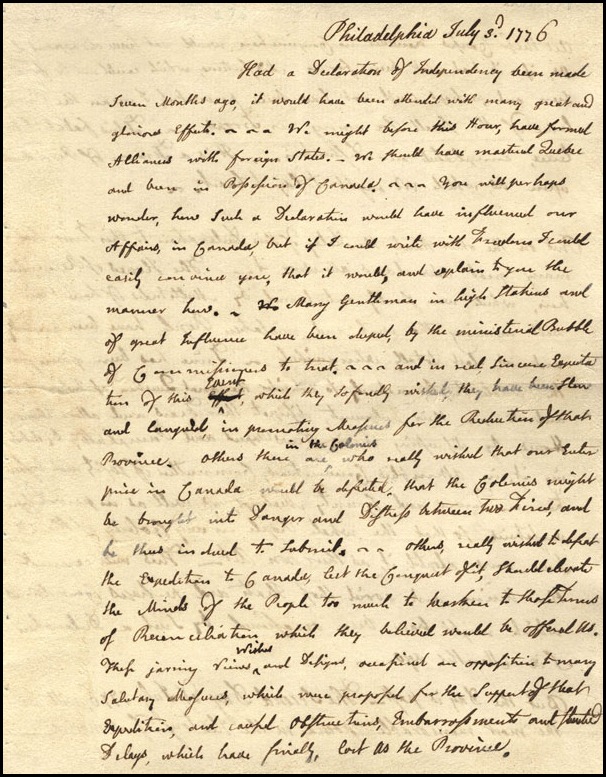 Philadelphia July 3.d 1776
Had a Declaration of Independency been made
Seven Months ago, it would have been attended with many great and
glorious Effects. ~ ~ ~ We might before this Hour, have formed
Alliances with foreign States. – We should have mastered Quebec
and been in Possession of Canada. ~ ~ ~ You will perhaps
wonder, how Such a Declaration would have influenced our
Affairs, in Canada, but if I could write with Freedom I could
easily convince you, that it would, and explain to you the
manner how. ~ Many Gentlemen in high Stations and
of great Influence have been duped, by the ministerial Bubble
of Commissioners to treat, ~ ~ ~ and in real, sincere Expecta
tion of this Event, which they so fondly wished, they have been slow
and languid, in promoting Measures for the Reduction of that
Province. Others there are in the Colonies who really wished that our Enter
prise in Canada would be defeated, that the Colonies might
be brought into Danger and Distress between two Fires, and
be thus induced to Submit. ~ ~ others, really wished to defeat
the Expedition to Canada, lest the Conquest of it, Should elevate
the Minds of the People too much to hearken to those Terms
of Reconciliation which they believed would be offered Us.
These jarring Views, Wishes and Designs, occasioned an opposition to many
Salutary Measures, which were proposed for the Support of that
Expedition, and caused Obstructions, Embarrassments and studied
Delays, which have finally, lost Us the Province.